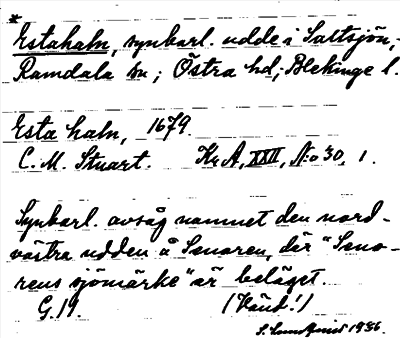 *
Estahaln, synbarl. udde i Saltsjön,
Ramdala sn; Östra hd; Blekinge l.
Esta haln, 1679.
C. M. Stuart. Kr A, XXII, No 30, 1.
Synbarl. avsåg namnet den nord-
västra udden å Senoren, där "Seno-
rens sjömärke" är beläget.
G. 19. (Vänd!)
S. Lundquist 1936.